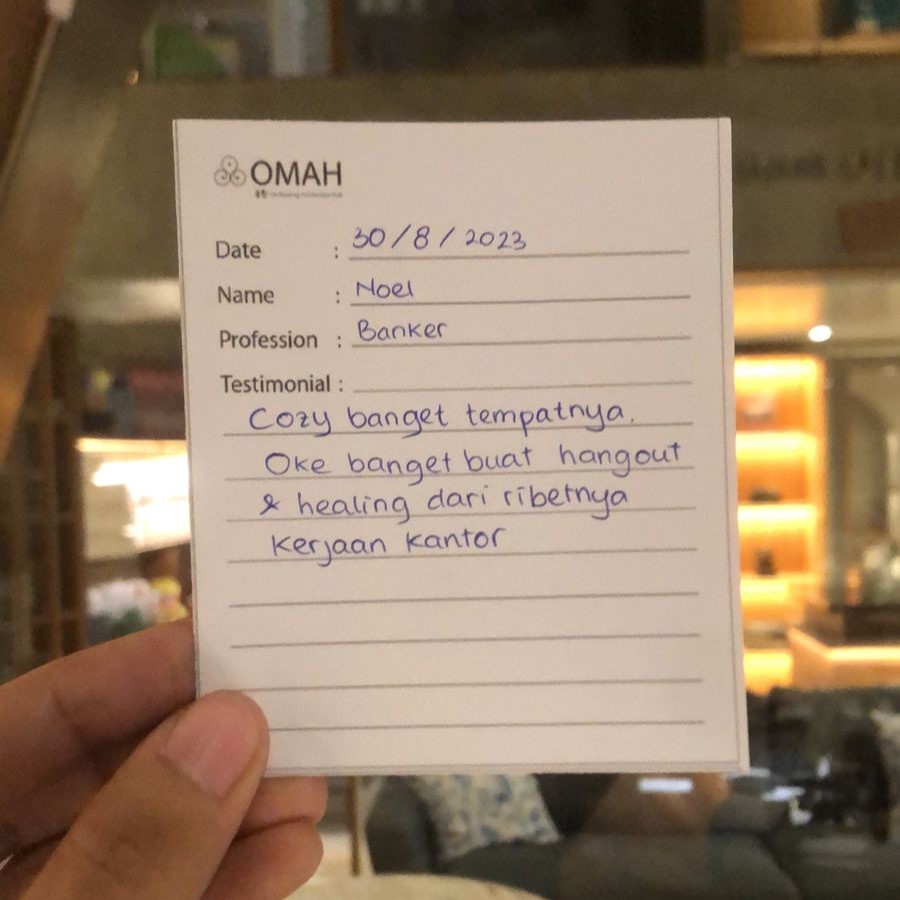 OMAH
Date : 30/8/2023
Name : Noel
Profession : Banker
Testimonial :
Cozy banget tempatnya.
Oke banget buat hangout
& healing dari ribetnya
kerjaan kantor